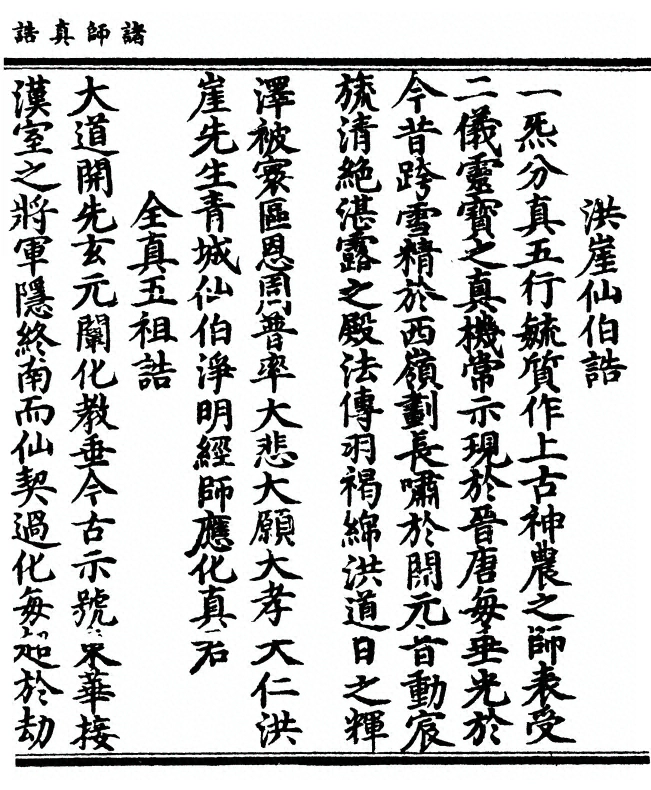 諸師真誥
洪崖仙伯誥
一炁分真五行毓質作上古神農之師表受
二儀靈寶之真機常示現於晉唐每垂光於
今昔跨雪精於西嶺劃長嘯於開元音動宸
旒清絕湛露之殿法傳羽褐綿洪道日之輝
澤被寰區恩周普率大悲大願大孝大仁洪
崖先生青城仙伯淨明經師應化真君
全真五祖誥
大道開先玄元闡化教垂今古示號東華接
漢室之將軍隱終南而仙契過化每超於劫